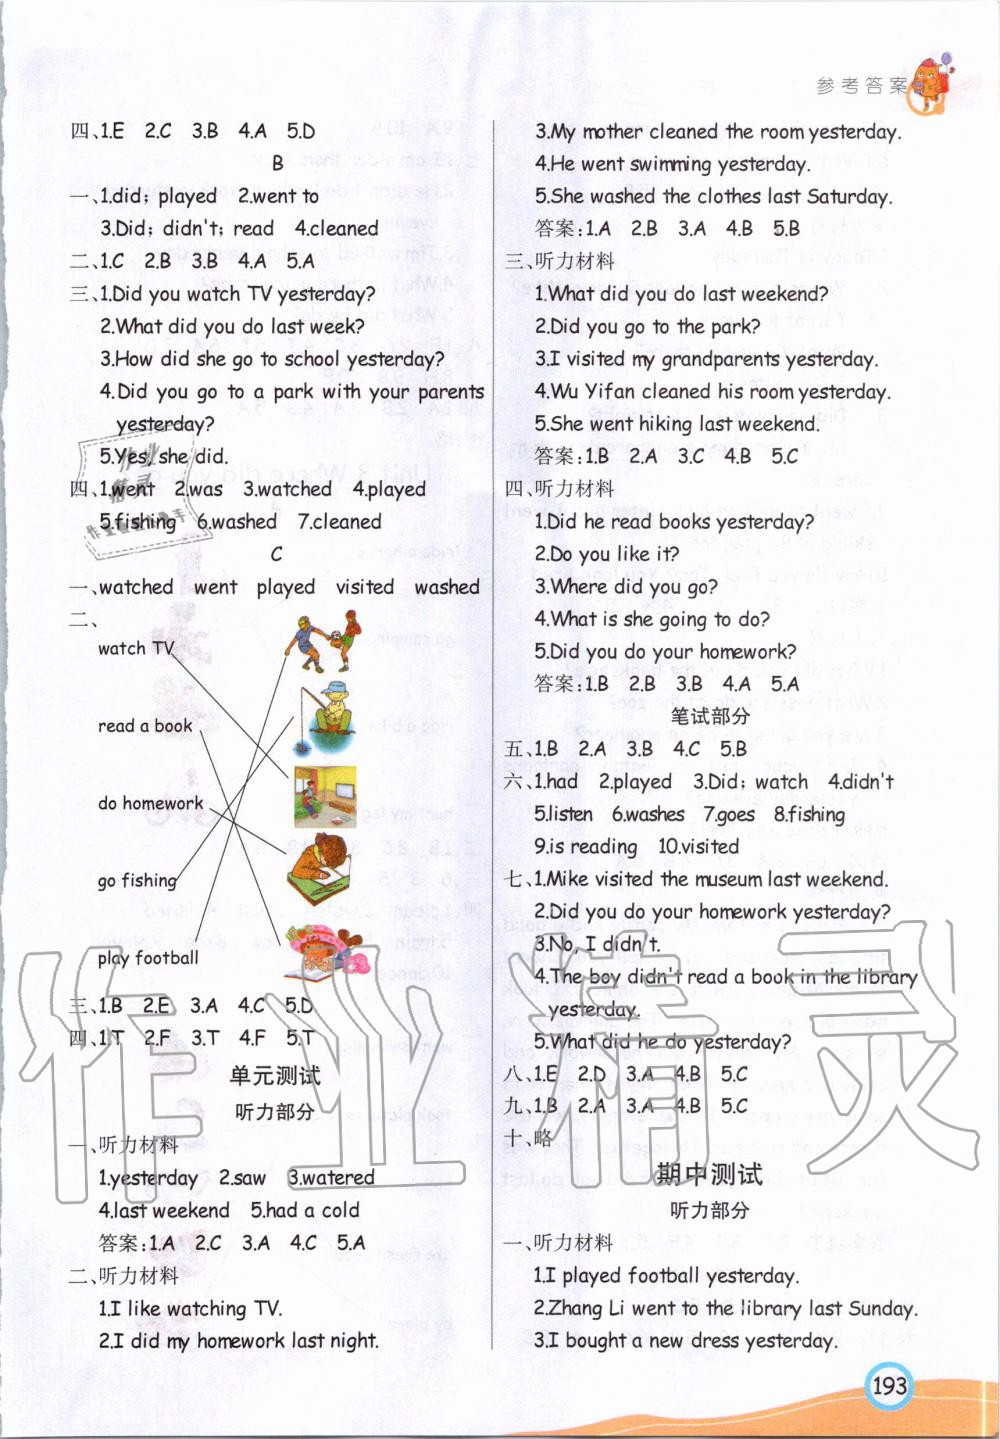 参考答案
四、1.E 2.C 3.B 4.A 5.D
B
一、1.did; played 2.went to
3.Did; didn't; read 4.cleaned
二、1.C 2.B 3.B 4.A 5.A
三、1.Did you watch TV yesterday?
2.What did you do last week?
3.How did she go to school yesterday?
4.Did you go to a park with your parents
yesterday?
5.Yes, she did.
四、1.went 2.was 3.watched 4.played
5.fishing 6.washed 7.cleaned
C
一、watched went played visited washed
二、
watch TV
read a book
do homework
go fishing
play football
三、1.B 2.E 3.A 4.C 5.D
四、1.T 2.F 3.T 4.F 5.T
单元测试
听力部分
一、听力材料
1.yesterday 2.saw 3.watered
4.last weekend 5.had a cold
答案:1.A 2.C 3.A 4.C 5.A
二、听力材料
1.I like watching TV.
2.I did my homework last night.
3.My mother cleaned the room yesterday.
4.He went swimming yesterday.
5.She washed the clothes last Saturday.
答案:1.A 2.B 3.A 4.B 5.B
三、听力材料
1.What did you do last weekend?
2.Did you go to the park?
3.I visited my grandparents yesterday.
4.Wu Yifan cleaned his room yesterday.
5.She went hiking last weekend.
答案:1.B 2.A 3.C 4.B 5.C
四、听力材料
1.Did he read books yesterday?
2.Do you like it?
3.Where did you go?
4.What is she going to do?
5.Did you do your homework?
答案:1.B 2.B 3.B 4.A 5.A
笔试部分
五、1.B 2.A 3.B 4.C 5.B
六、1.had 2.played 3.Did; watch 4.didn't
5.listen 6.washes 7.goes 8.fishing
9.is reading 10.visited
七、1.Mike visited the museum last weekend.
2.Did you do your homework yesterday?
3.No, I didn't.
4.The boy didn't read a book in the library
yesterday.
5.What did he do yesterday?
八、1.E 2.D 3.A 4.B 5.C
九、1.B 2.A 3.A 4.B 5.C
十、略
期中测试
听力部分
一、听力材料
1.I played football yesterday.
2.Zhang Li went to the library last Sunday.
3.I bought a new dress yesterday.
193
作业精灵
作业
精灵